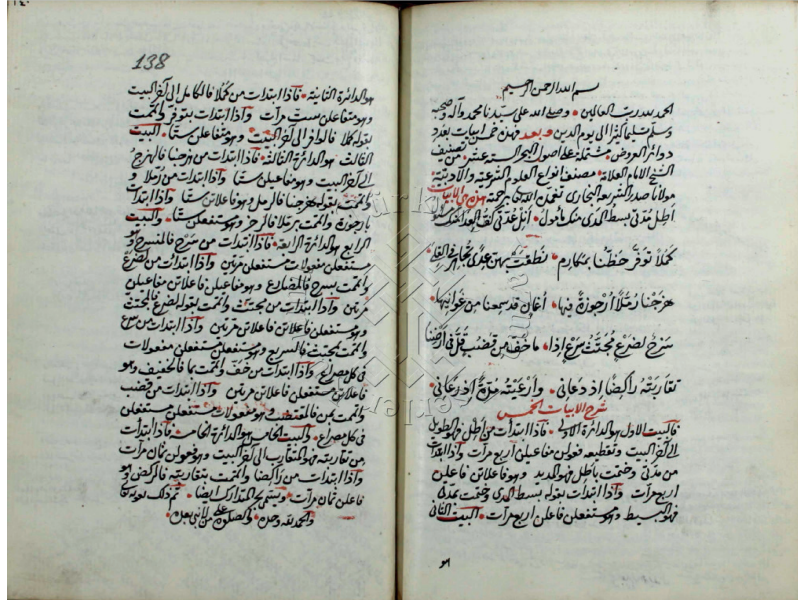 بسم الله الرحمن الرحيم
الحمد لله رب العالمين وصلى الله على سيدنا محمد وآله وصحبه
وسلم تسليما كثيرا الى يوم الدين وبعد فهذه خمس ابيات بعدد
دوائر العروض مشتملة على اصول البحور الستة عشر من تصنيف
الشيخ الامام العلامة مصنف انواع العلوم الشرعية والادبية
مولانا صدر الشريعة البخاري تغمده الله برحمته هذه هي الابيات
اطل مدتي بسط الذي منك مأمول
كملا توفر حظنا بمكارم نطقت بهن
هزجنا رملا ارجوزة فيها اغان قد سمعنا من غوانيها
سرح لضرع مجتث سرع اذا ما خف من قضب قل في ارضنا
تقاربته راكضا اذ دعاني وارعيته مرة اذ رعاني
شرح الابيات الخمس
فالبيت الاول هو الدائرة الاولى فاذا ابتدات من اطل فهو الطويل
الى آخر البيت وتقطيعه فعولن مفاعيلن اربع مرات واذا ابتدات
من مدتي وختمت باطل فهو المديد وهو فاعلاتن فاعلن
اربع مرات واذا ابتدات بقوله بسط الذي وختمت بمدتي
فهو البسيط وهو مستفعلن فاعلن اربع مرات البيت الثاني
هو
138
هو الدائرة الثانية فاذا ابتدات من كملا فالكامل الى آخر البيت
وهو متفاعلن ست مرات واذا ابتدات بتوفر واتممت
بقوله كملا فالوافر الى آخر البيت وهو مفاعلتن ستا البيت
الثالث هو الدائرة الثالثة فاذا ابتدات من هزجنا فالهزج
الى آخر البيت وهو مفاعيلن ستا واذا ابتدات من رملا و
واتممت بقوله هزجنا فالرمل وهو فاعلاتن ستا واذا ابتدات
بارجوزة واتممت برملا فالرجز وهو مستفعلن ستا والبيت
الرابع هو الدائرة الرابعة فاذا ابتدات من سرح فالمنسرح وهو
مستفعلن مفعولات مستفعلن مرتين واذا ابتدات من لضرع
واتممت بسرح فالمضارع وهو مفاعيلن فاعلاتن مفاعيلن
مرتين واذا ابتدات من مجتث واتممت بقوله لضرع فالمجتث
وهو مستفعلن فاعلاتن فاعلاتن مرتين واذا ابتدات من سرع
واتممت بمجتث فالسريع وهو مستفعلن مستفعلن مفعولات
في كل مصراع واذا ابتدات من خف واتممت بما فالخفيف وهو
فاعلاتن مستفعلن فاعلاتن مرتين واذا ابتدات من قضب
واتممت بمن فالمقتضب وهو مفعولات مستفعلن مستفعلن
في كل مصراع والبيت الخامس هو الدائرة الخامسة فاذا ابتدات
من تقاربته فهو المتقارب الى آخر البيت وهو فعولن ثمان مرات
واذا ابتدات من راكضا واتممت بتقاربته فالركض وهو
فاعلن ثمان مرات ويسمى بالمتدارك ايضا تم ذلك
والحمد لله وحده والصلوة على من لا نبي بعده